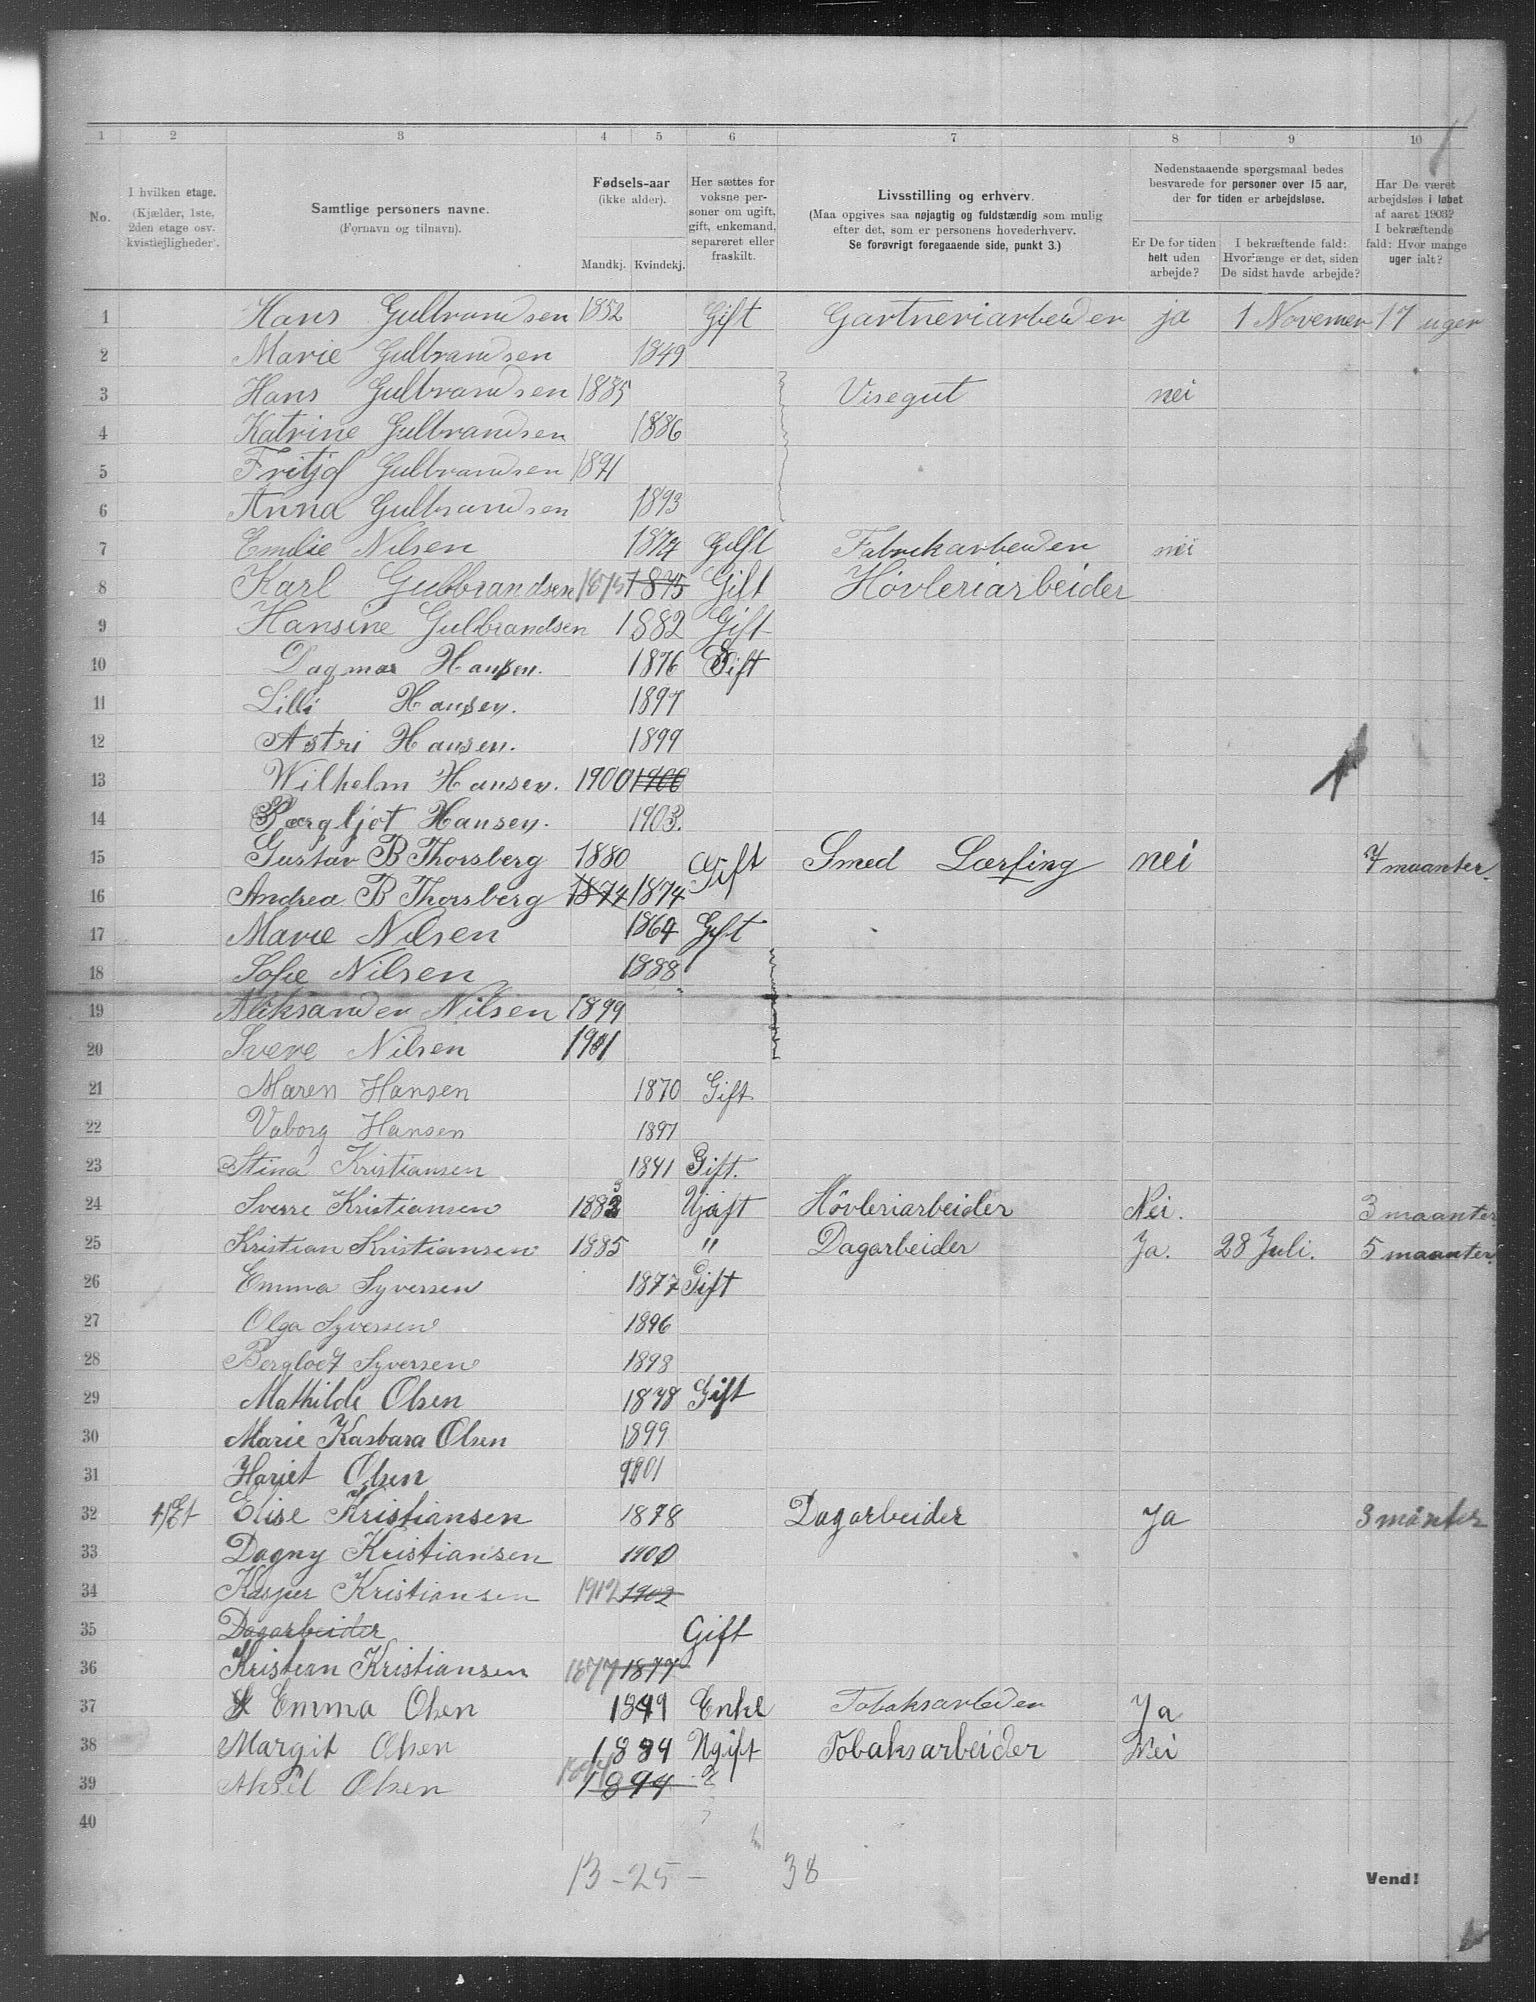 1 2 3 4 5 6 7 8 9 10
No.
I hvilken etage.
(Kjælder, 1ste,
2den etage osv.
kvistleiligheder).
Samtlige personers navne.
(Fornavn og tilnavn).
Fødsels-aar
(ikke alder).
Mandkj. Kvindekj.
Her sættes for
voksne per-
soner om ugift,
gift, enkemand,
separeret eller
fraskilt.
Livsstilling og erhverv.
(Maa opgives saa nøjagtig og fuldstændig som mulig
efter det, som er personens hovederhverv.
Se forøvrigt foregaaende side, punkt 3.)
Nedenstaaende spørgsmaal bedes
besvarede for personer over 15 aar,
der for tiden er arbejdsløse.
Er De for tiden
helt uden
arbejde?
I bekræftende fald:
Hvorlænge er det, siden
De sidst havde arbejde?
Har De været
arbejdsløs i løbet
af aaret 1903?
I bekræftende
fald: Hvor mange
uger ialt?
1 Hans Gulbrandsen 1852 Gift Gartneriarbeider ja 1 Novemer 17 uger
2 Marie Gulbrandsen 1849
3 Hans Gulbrandsen 1885 Visegut nei
4 Katrine Gulbrandsen 1886
5 Fritjof Gulbrandsen 1891
6 Anna Gulbrandsen 1893
7 Emilie Nilsen 1874 Gift Fabrikarbeider nei
8 Karl Gulbrandsen 1875 1875 Gift Hövleriarbeider
9 Hansine Gulbrandsen 1882 Gift
10 Dagmar Hansen. 1876 Gift
11 Lilli Hansen. 1897
12 Astri Hansen. 1899
13 Wilhelm Hansen. 1900 1900
14 Bergljot Hansen. 1903.
15 Gustav B Thorsberg 1880 Gift Smed Lærling nei 7 maanter.
16 Andrea B Thorsberg 1874 1874
17 Marie Nilsen 1864 Gift
18 Sofie Nilsen 1888
19 Aleksander Nilsen 1899
20 Svere Nilsen 1901
21 Maren Hansen 1870 Gift
22 Vaborg Hansen 1897
23 Stina Kristiansen 1841 Gift.
24 Sverre Kristiansen 1883 Ujift Hövleriarbeider Nei. 3 maanter
25 Kristian Kristiansen 1885 " Dagarbeider Ja. 28 Juli. 5 maanter.
26 Emma Syversen 1877 Gift
27 Olga Syversen 1896
28 Bergloet Syversen 1898
29 Mathilde Olsen 1878 Gift
30 Marie Kasbara Olsen 1899
31 Hariet Olsen 1901
32 1/Et Elise Kristiansen 1878 Dagarbeider Ja 3 mánter
33 Dagny Kristiansen 1900
34 Kasper Kristiansen 1902 1902
35 Dagarbeider Gift
36 Kristian Kristiansen 1877 1877
37 Emma Olsen 1849 Enke Tobaksarbeder Ja
38 Margit Olsen 1884 Ugift Tobaksarbeider Nei
39 Aksel Olsen 1894 1894
40
13 - 25 - 38
Vend!